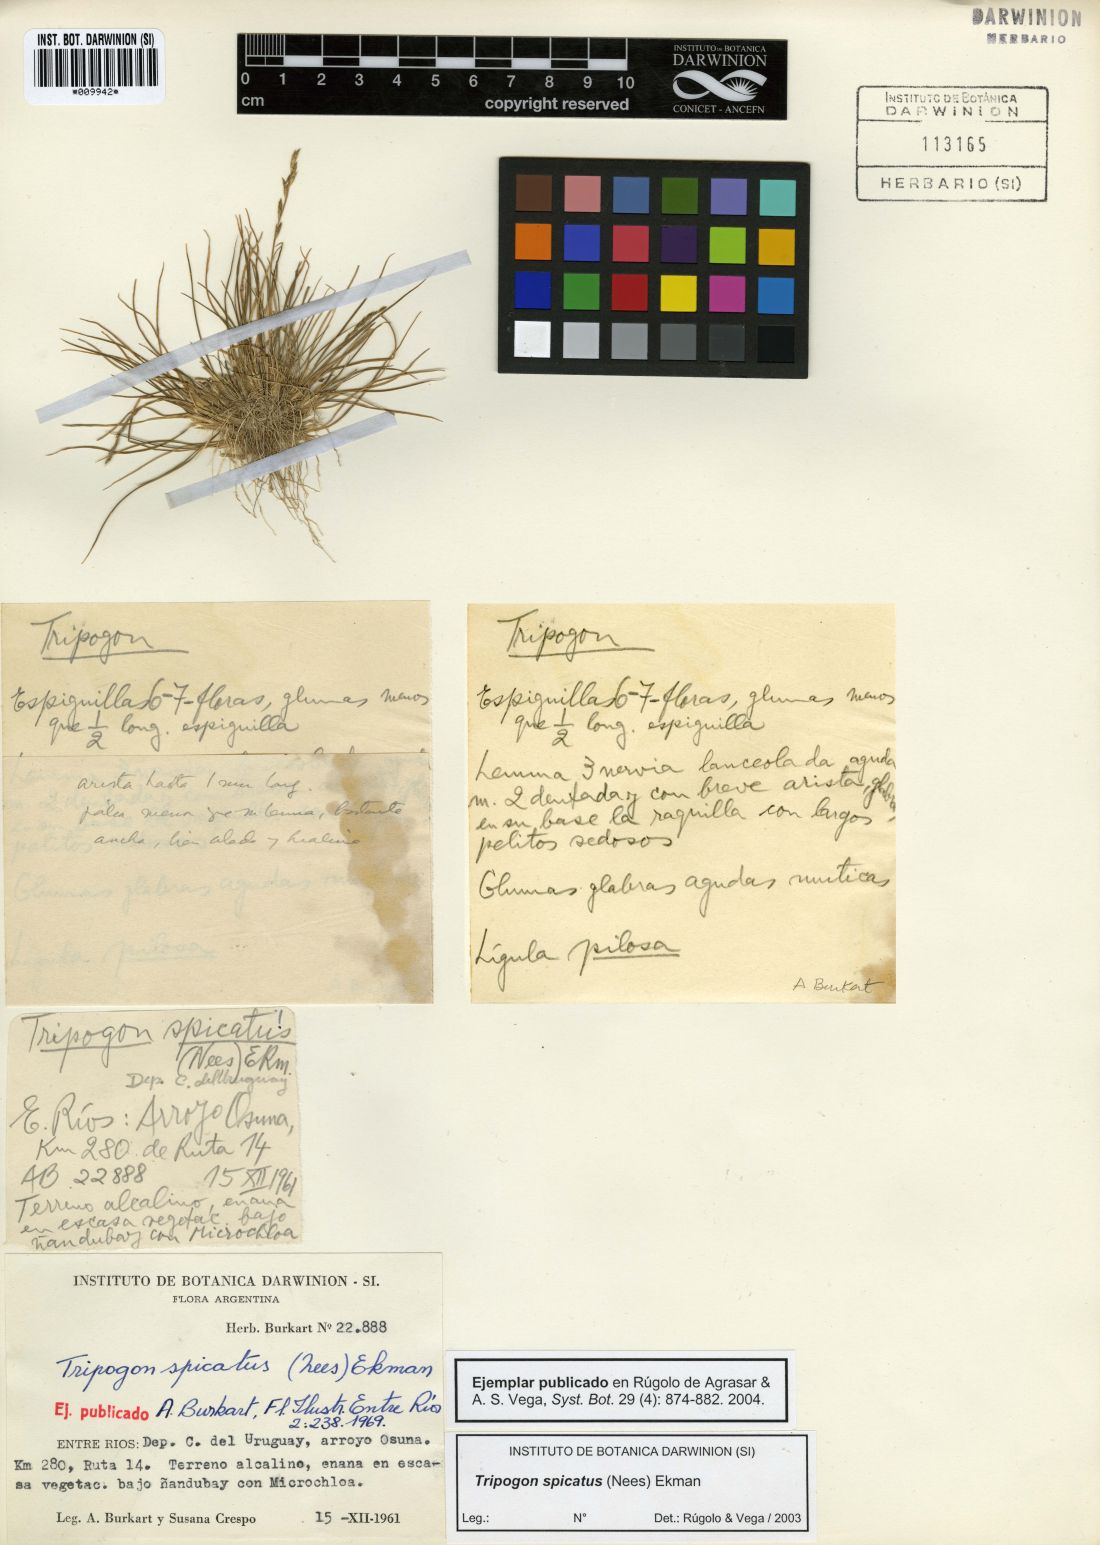 INST. BOT. DARWINION (SI)
*009942*
0 1 2 3 4 5 6 7 8 9 10
cm
copyright reserved
INSTITUTO DE BOTANICA
DARWINION
CONICET - ANCEFN
DARWINION
HERBARIO
INSTITUTO DE BOTÁNICA
DARWINION
113165
HERBARIO (SI)
Tripogon
Espiguillas 6-7-floras, glumas menos
que 1/2 long. espiguilla
arista hasta 1 mm long.
pálea menor que m lemma, bastante
ancha, bien alada y hialina
Glumas glabras agudas
Lígula pilosa
Tripogon
Espiguillas 6-7-floras, glumas menos
que 1/2 long. espiguilla
Lemma 3 nervia lanceolada aguda
m. 2 dentada y con breve arista, glabra
en su base la raquilla con largos
pelitos sedosos
Glumas glabras agudas muticas
Lígula pilosa
A Burkart
Tripogon spicatus!
(Nees) EKm.
Dep. C. del Uruguay
E. Ríos: Arroyo Osuna,
Km 280 de Ruta 14
AB 22888 15 XII 1961
Terreno alcalino, enana
en escasa vegetac. bajo
ñandubay con Microchloa
INSTITUTO DE BOTANICA DARWINION - SI.
FLORA ARGENTINA
Herb. Burkart Nº 22.888
Tripogon spicatus (Nees) Ekman
Ej. publicado A. Burkart, Fl. Ilustr. Entre Ríos
2:238.1969.
ENTRE RIOS: Dep. C. del Uruguay, arroyo Osuna.
Km 280, Ruta 14. Terreno alcalino, enana en esca-
sa vegetac. bajo ñandubay con Microchloa.
Leg. A. Burkart y Susana Crespo 15 -XII-1961
Ejemplar publicado en Rúgolo de Agrasar &
A. S. Vega, Syst. Bot. 29 (4): 874-882. 2004.
INSTITUTO DE BOTANICA DARWINION (SI)
Tripogon spicatus (Nees) Ekman
Leg.: N° Det.: Rúgolo & Vega / 2003